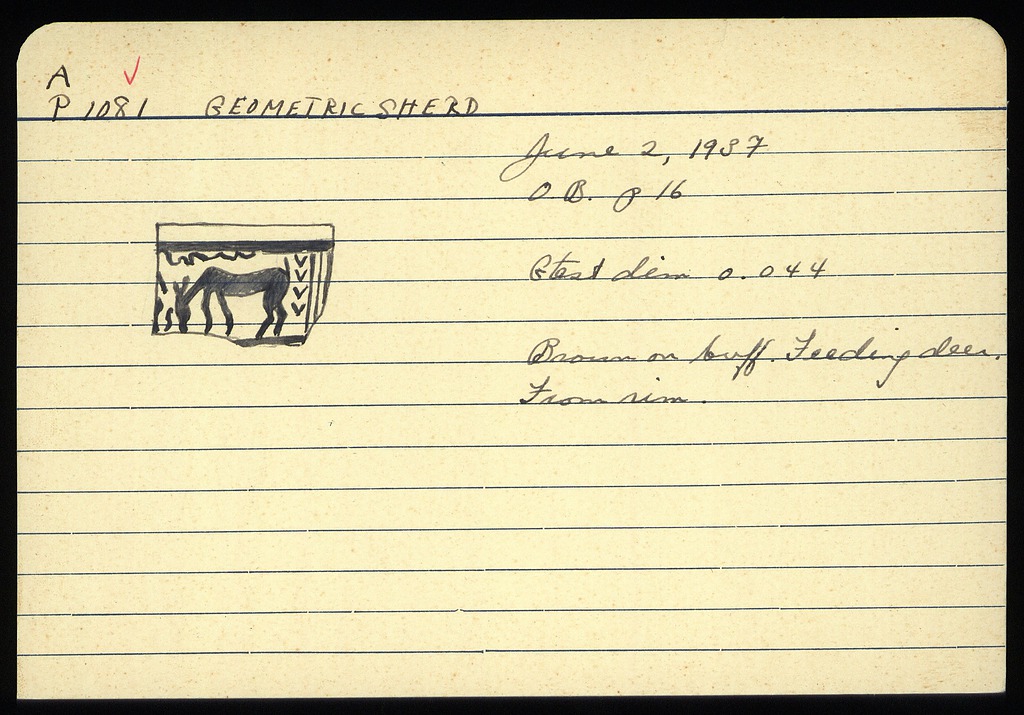 A
P 1081 GEOMETRIC SHERD
June 2, 1937
O.B. p 16
Gtest dim 0.044
Brown on buff. Feeding deer.
From rim.